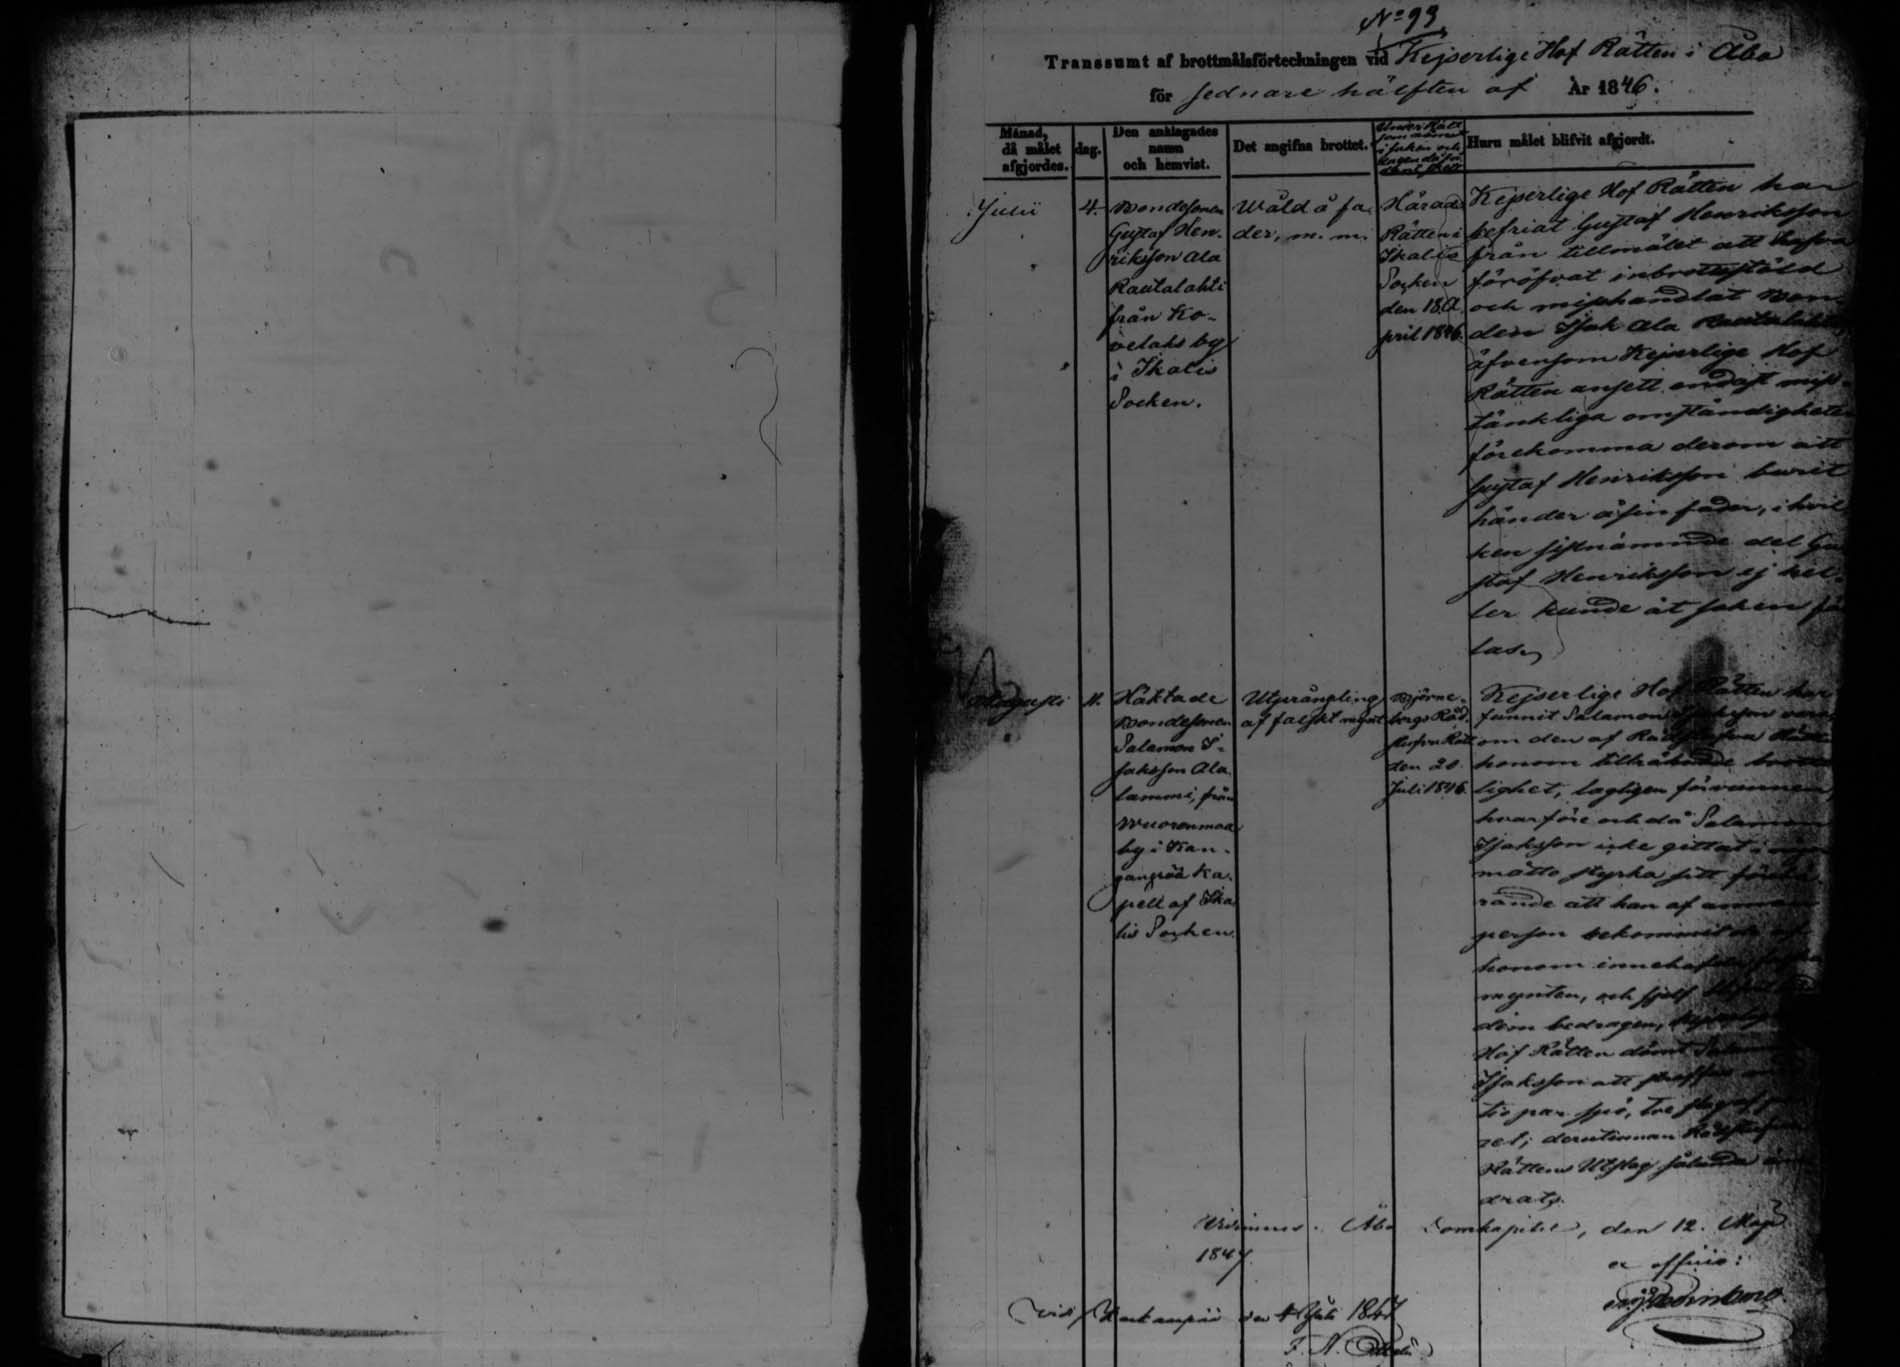 No 99
Transsumt af brottmålsförteckningen vid Kejserlige Hof Rätten i Åbo
för sednare hälften af År 1846.
Månad,
då målet
afgjordes.
dag.
Den anklagades
namn
och hemvist.
Det angifna brottet.
Under Rätt
i saken och
Huru målet blifvit afgjordt.
Julii
4.
Bondesonen
Gustaf Hen-
riksson Ala
Rautalahti
från Ko-
velaks by
i Ikalis
Socken.
Wåld å fa-
der, m. m.
Härads
Rätten i
Ikalis
Socken
den 18 A-
pril 1846.
Kejserlige Hof Rätten har
befriat Gustaf Henriksson
från tillmälet att hafva
föröfvat inbrottsstöld
och misshandlat Bon-
den Isak Ala Rautalahti
äfvensom Kejserlige Hof
Rätten ansett endast miss-
tänkliga omständigheter
förekomma derom att
Gustaf Henriksson burit
händer å sin fader, i hvil-
ken sistnämnde del Gu-
staf Henriksson ej hel-
ler kunde åt saken fäl-
las.
Augusti
11.
Häktade
Bondesonen
Salamon I-
saksson Ala
lammi, från
Wuorenmaa
by i Kan-
ganpää Ka-
pell af Ika-
lis Socken.
Utprångling
af falskt mynt
Björne-
borgs Råd-
stufvu Rätt
den 20
Juli 1846.
Kejserlige Hof Rätten har
funnit Salamon Isaksson vara
om den af Rådstufvu Rätten
honom tillräknade brotts-
lighet, lagligen förvunnen,
hvarföre och då Salamon
Isaksson icke gittat i någon
måtto styrka sitt föröfva-
rande att han af annan
person bekommit de af
honom innehafda
mynten, och sjelf
dem bedragen,
Hof Rätten dömt Salamon
Isaksson att straffas med
tio par spö, tre slag af pa-
ret; derutinnan Rådstufvu
Rättens Utslag sålunda än-
drats.
Vidimeras. Åbo Domkapitel, den 12. Maji
1847.
ex officio:
Vidi, Kankanpää den 4 Juli 1847